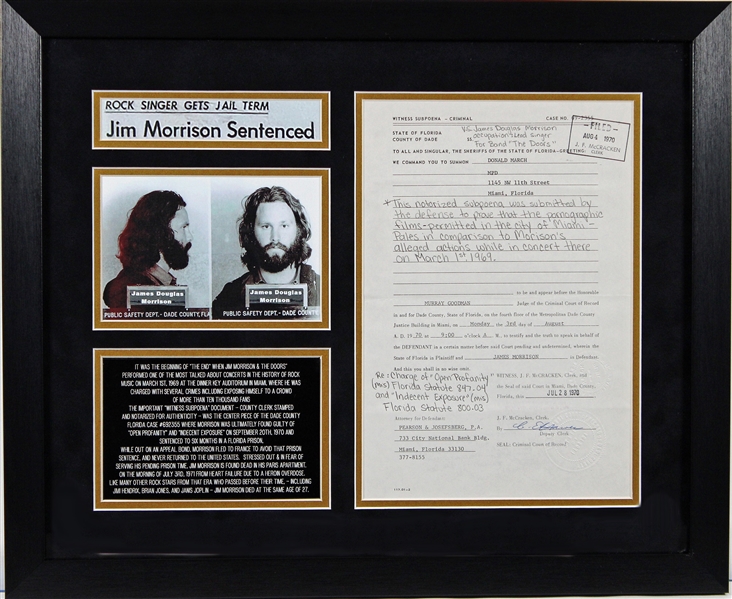 ROCK SINGER GETS JAIL TERM
Jim Morrison Sentenced
James Douglas
Morrison
PUBLIC SAFETY DEPT. - DADE COUNTY, FLA
James Douglas
Morrison
PUBLIC SAFETY DEPT. - DADE COUNTY
IT WAS THE BEGINNING OF "THE END" WHEN JIM MORRISON & THE DOORS"
PERFORMED ONE OF THE MOST TALKED ABOUT CONCERTS IN THE HISTORY OF ROCK
MUSIC ON MARCH 1ST, 1969 AT THE DINNER KEY AUDITORIUM IN MIAMI, WHERE HE WAS
CHARGED WITH SEVERAL CRIMES INCLUDING EXPOSING HIMSELF TO A CROWD
OF MORE THAN TEN THOUSAND FANS
THE IMPORTANT "WITNESS SUBPOENA" DOCUMENT - COUNTY CLERK STAMPED
AND NOTARIZED FOR AUTHENTICITY - WAS THE CENTER PIECE OF THE DADE COUNTY
FLORIDA CASE #692355 WHERE MORRISON WAS ULTIMATELY FOUND GUILTY OF
"OPEN PROFANITY" AND "INDECENT EXPOSURE" ON SEPTEMBER 20TH, 1970 AND
SENTENCED TO SIX MONTHS IN A FLORIDA PRISON.
WHILE OUT ON AN APPEAL BOND, MORRISON FLED TO FRANCE TO AVOID THAT PRISON
SENTENCE, AND NEVER RETURNED TO THE UNITED STATES. STRESSED OUT & IN FEAR OF
SERVING HIS PENDING PRISON TIME, JIM MORRISON IS FOUND DEAD IN HIS PARIS APARTMENT,
ON THE MORNING OF JULY 3RD, 1971 FROM HEART FAILURE DUE TO A HEROIN OVERDOSE.
LIKE MANY OTHER ROCK STARS FROM THAT ERA WHO PASSED BEFORE THEIR TIME, - INCLUDING
JIMI HENDRIX, BRIAN JONES, AND JANIS JOPLIN - JIM MORRISON DIED AT THE SAME AGE OF 27.
WITNESS SUBPOENA - CRIMINAL CASE NO.
-FILED-
AUG 4 1970
J. F. McCRACKEN
CLERK
STATE OF FLORIDA
COUNTY OF DADE SS
V.S. James Douglas Morrison
occupation: Lead singer
For Band "The Doors"
TO ALL AND SINGULAR, THE SHERIFFS OF THE STATE OF FLORIDA-GREETING:
WE COMMAND YOU TO SUMMON DONALD MARCH
MPD
1145 SW 11th Street
Miami, Florida
*This notarized subpoena was submitted by
the defense to prove that the pornographic
films-permitted in the city of Miami -
Pales in comparison to Morison's
alleged actions while in concert there
on March 1st 1969.
to be and appear before the Honorable
MURRAY GOODMAN Judge of the Criminal Court of Record
in and for Dade County, State of Florida, on the fourth floor of the Metropolitan Dade County
Justice Building in Miami, on Monday, the 3rd day of August
A. D. 19 70 at 9:00 o'clock A. M., to testify and the truth to speak in behalf of
the DEFENDANT in a certain matter before said Court pending and undetermined, wherein the
State of Florida is Plaintiff and JAMES MORRISON is Defendant.
And this you shall in no wise omit.
Re: Charge of "Open Profanity"
(mis) Florida Statute 847.04
and "Indecent Exposure" (mis)
Florida Statute 800.03
WITNESS, J. F. McCRACKEN, Clerk, and
the Seal of said Court in Miami, Dade County,
Florida, this JUL 28 1970
Attorney for Defendant:
PEARSON & JOSEFSBERG, P.A.
733 City National Bank Bldg.
Miami, Florida 33130
377-8155
J. F. McCracken, Clerk.
By
Deputy Clerk.
SEAL: Criminal Court of Record